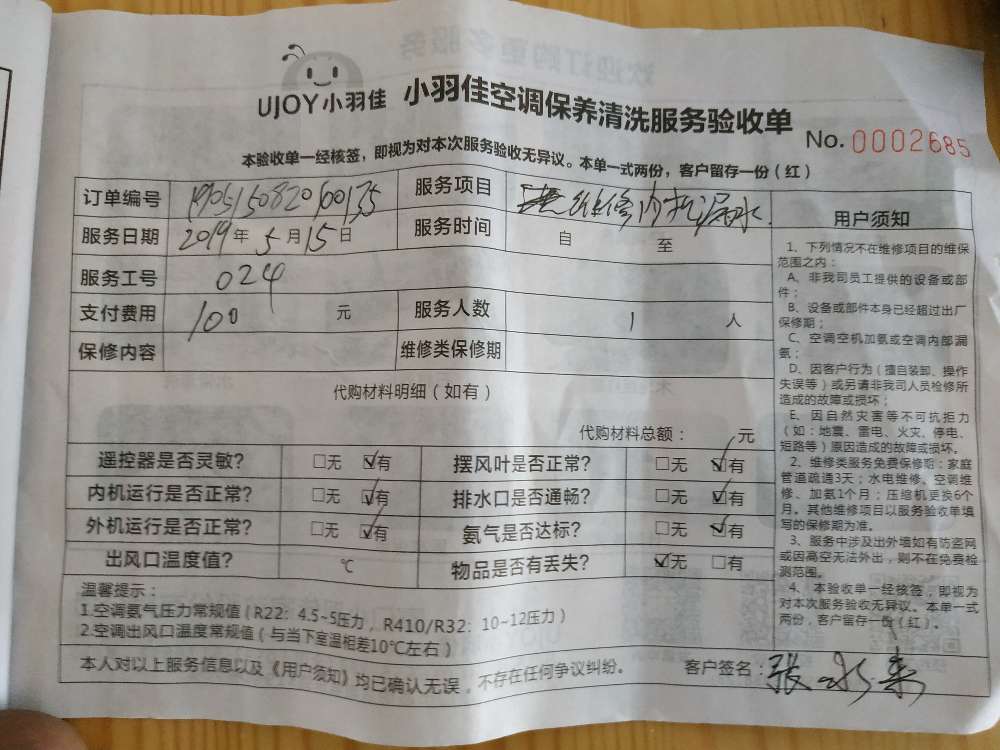 UJOY小羽佳 小羽佳空调保养清洗服务验收单
No. 0002685
本验收单一经核签，即视为对本次服务验收无异议。本单一式两份，客户留存一份（红）
订单编号 服务项目 维修内机漏水
服务日期 2019年5月15日 服务时间 自 至
服务工号 024
支付费用 100 元 服务人数 1 人
保修内容 维修类保修期
代购材料明细（如有）
代购材料总额： 元
遥控器是否灵敏？ □无 ☑有 摆风叶是否正常？ □无 ☑有
内机运行是否正常？ □无 ☑有 排水口是否通畅？ □无 ☑有
外机运行是否正常？ □无 ☑有 氨气是否达标？ □无 ☑有
出风口温度值？ ℃ 物品是否有丢失？ ☑无 □有
温馨提示：
1.空调氨气压力常规值（R22：4.5~5压力，R410/R32：10~12压力）
2.空调出风口温度常规值（与当下室温相差10℃左右）
本人对以上服务信息以及《用户须知》均已确认无误，不存在任何争议纠纷。 客户签名：张水来
用户须知
1、下列情况不在维修项目的维保
范围之内：
A、非我司员工提供的设备或部
件；
B、设备或部件本身已经超过出厂
保修期；
C、空调空机加氨或空调内部漏
氨；
D、因客户行为（擅自装卸、操作
失误等）或另请非我司人员检修所
造成的故障或损坏；
E、因自然灾害等不可抗拒力
（如：地震、雷电、火灾、停电、
短路等）原因造成的故障或损坏。
2、维修类服务免费保修期：家庭
管道疏通3天；水电维修、空调维
修、加氨1个月；压缩机更换6个
月。其他维修项目以服务验收单填
写的保修期为准。
3、服务中涉及出外墙如有防盗网
或因高空无法外出，则不在免费检
测范围。
4、本验收单一经核签，即视为
对本次服务验收无异议。本单一式
两份，客户留存一份（红）。